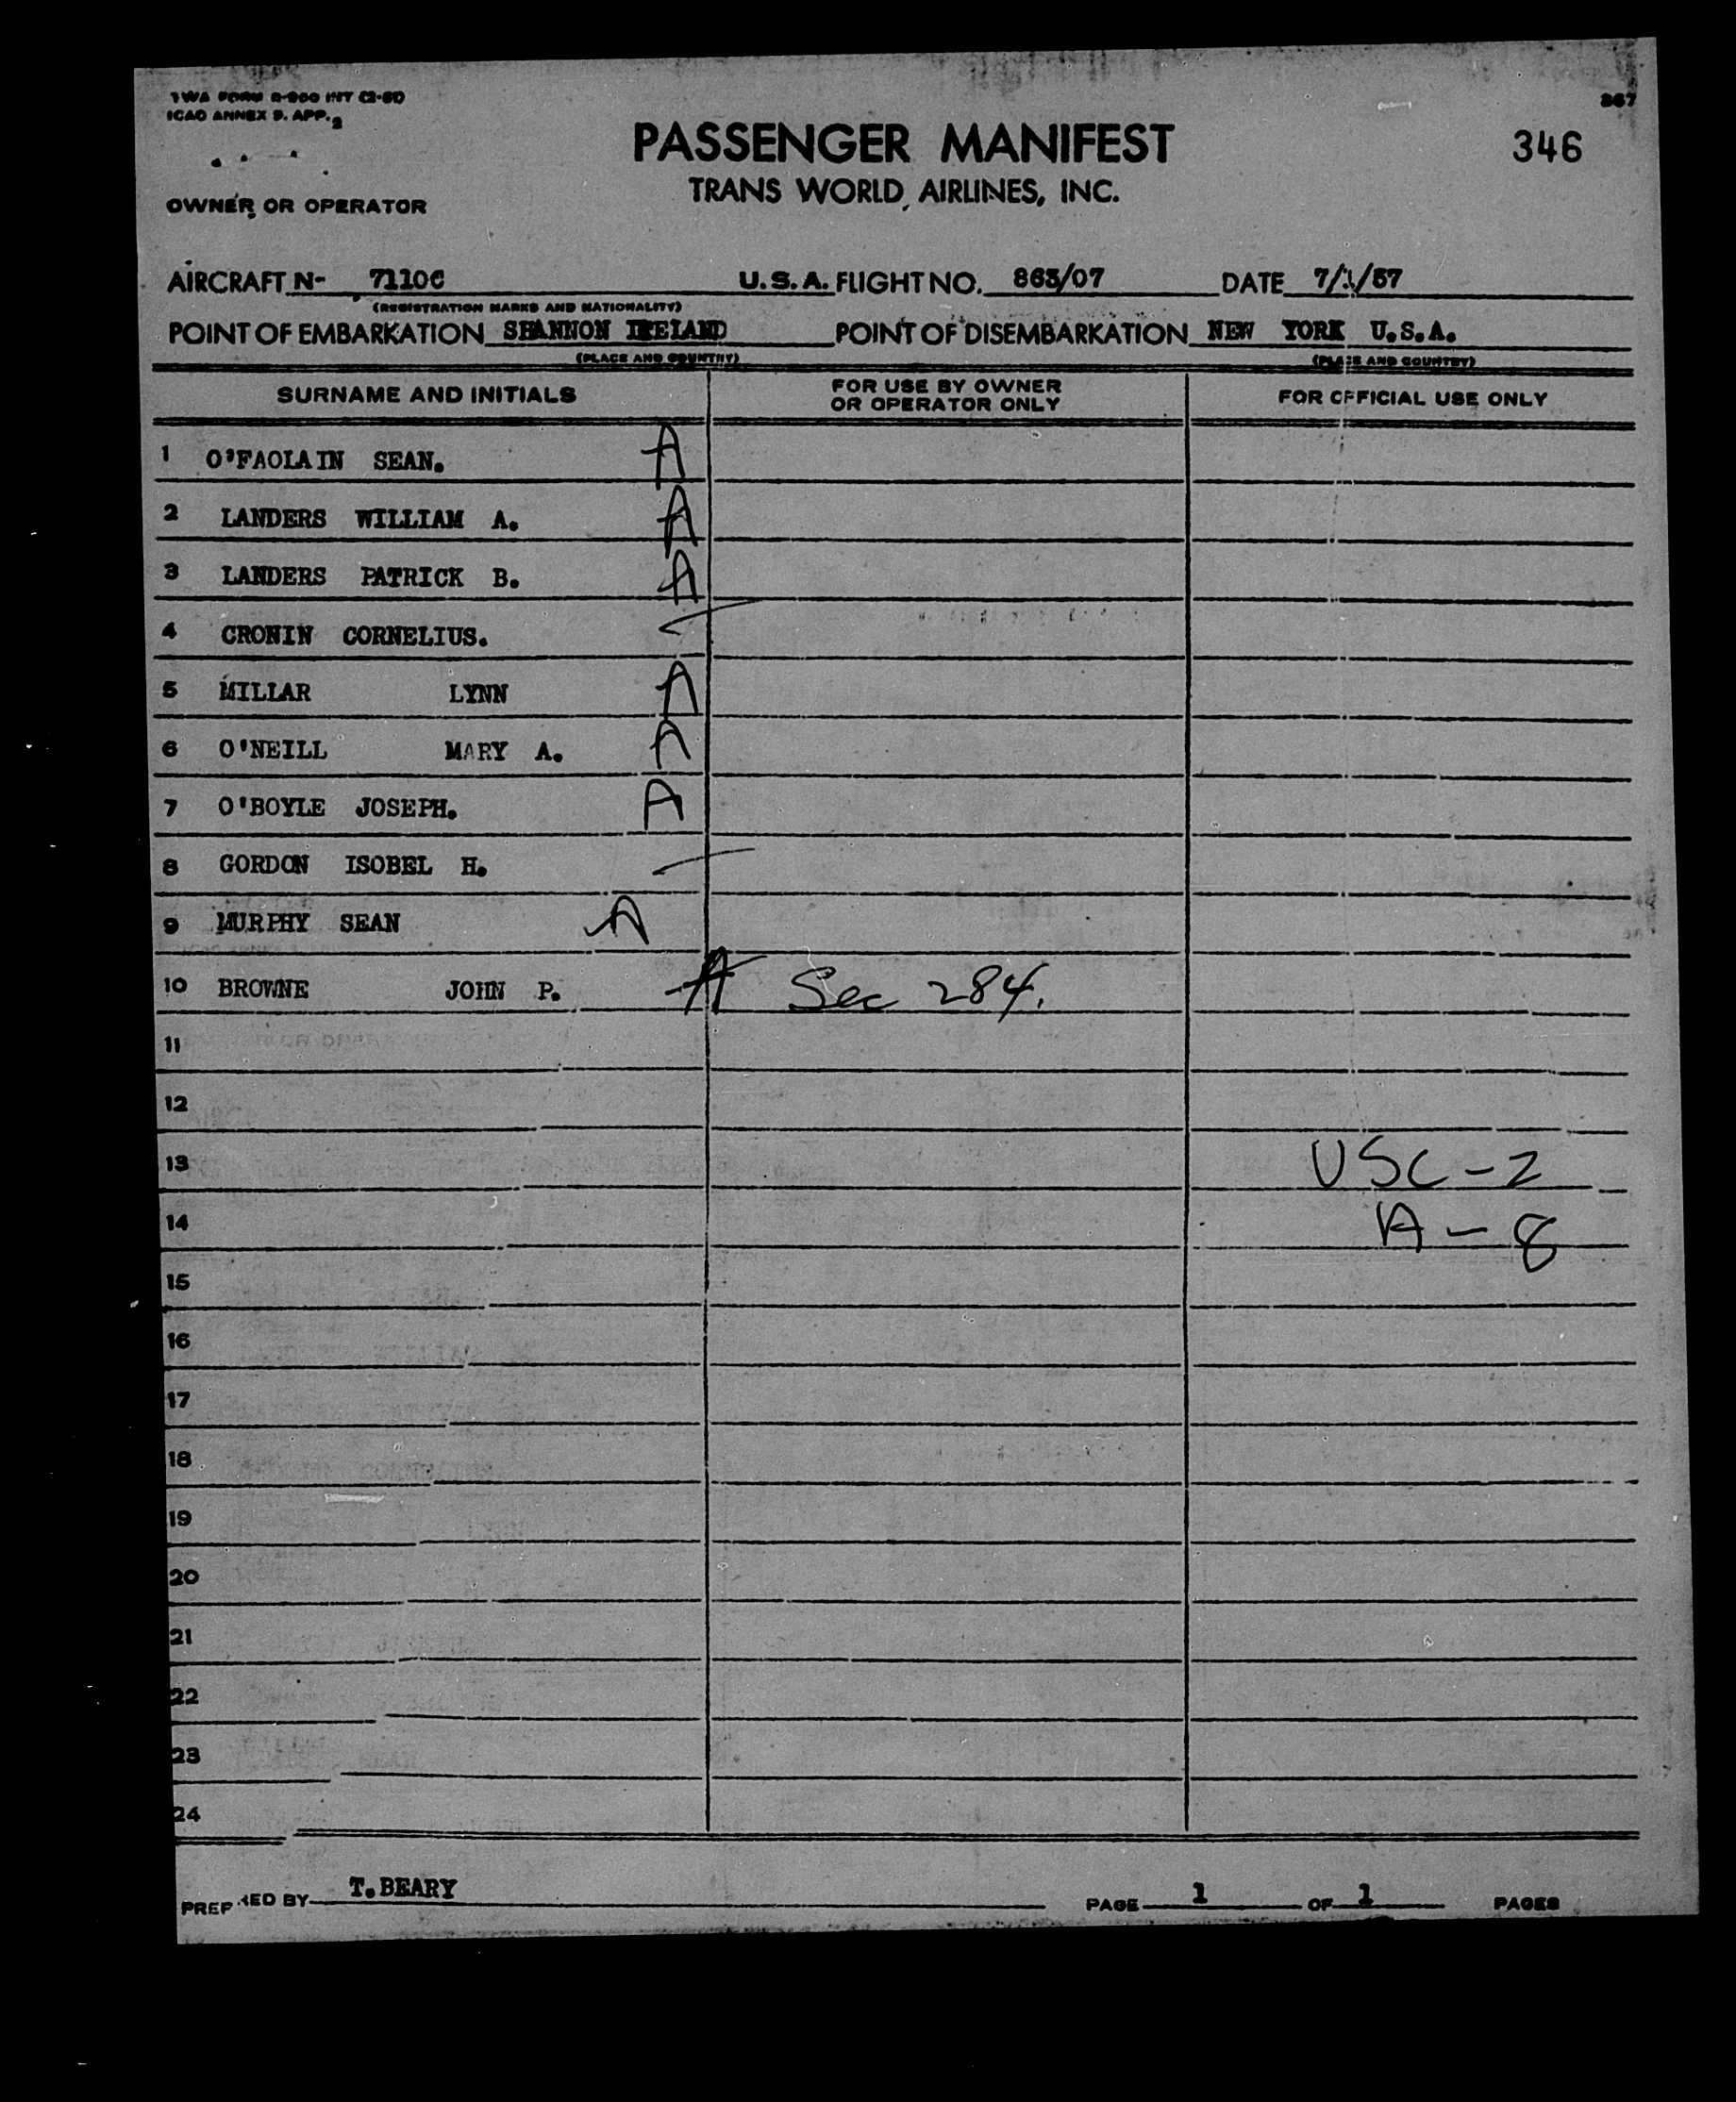 TWA FORM R-900 INT
ICAO ANNEX 9. APP. 2
367
346
PASSENGER MANIFEST
TRANS WORLD AIRLINES, INC.
OWNER OR OPERATOR
AIRCRAFT N- 7110C U.S.A. FLIGHT NO. 863/07 DATE
(REGISTRATION MARKS AND NATIONALITY)
POINT OF EMBARKATION SHANNON IRELAND POINT OF DISEMBARKATION NEW YORK U.S.A.
(PLACE AND COUNTRY) (PLACE AND COUNTRY)
SURNAME AND INITIALS FOR USE BY OWNER OR OPERATOR ONLY FOR OFFICIAL USE ONLY
1 O'FAOLAIN SEAN. A
2 LANDERS WILLIAM A. A
3 LANDERS PATRICK B. A
4 CRONIN CORNELIUS.
5 MILLAR LYNN A
6 O'NEILL MARY A. A
7 O'BOYLE JOSEPH. A
8 GORDON ISOBEL H.
9 MURPHY SEAN A
10 BROWNE JOHN P. A Sec 284.
11
12
13 USC-2
14 A-8
15
16
17
18
19
20
21
22
23
24
PREPARED BY T. BEARY PAGE 1 OF 1 PAGES